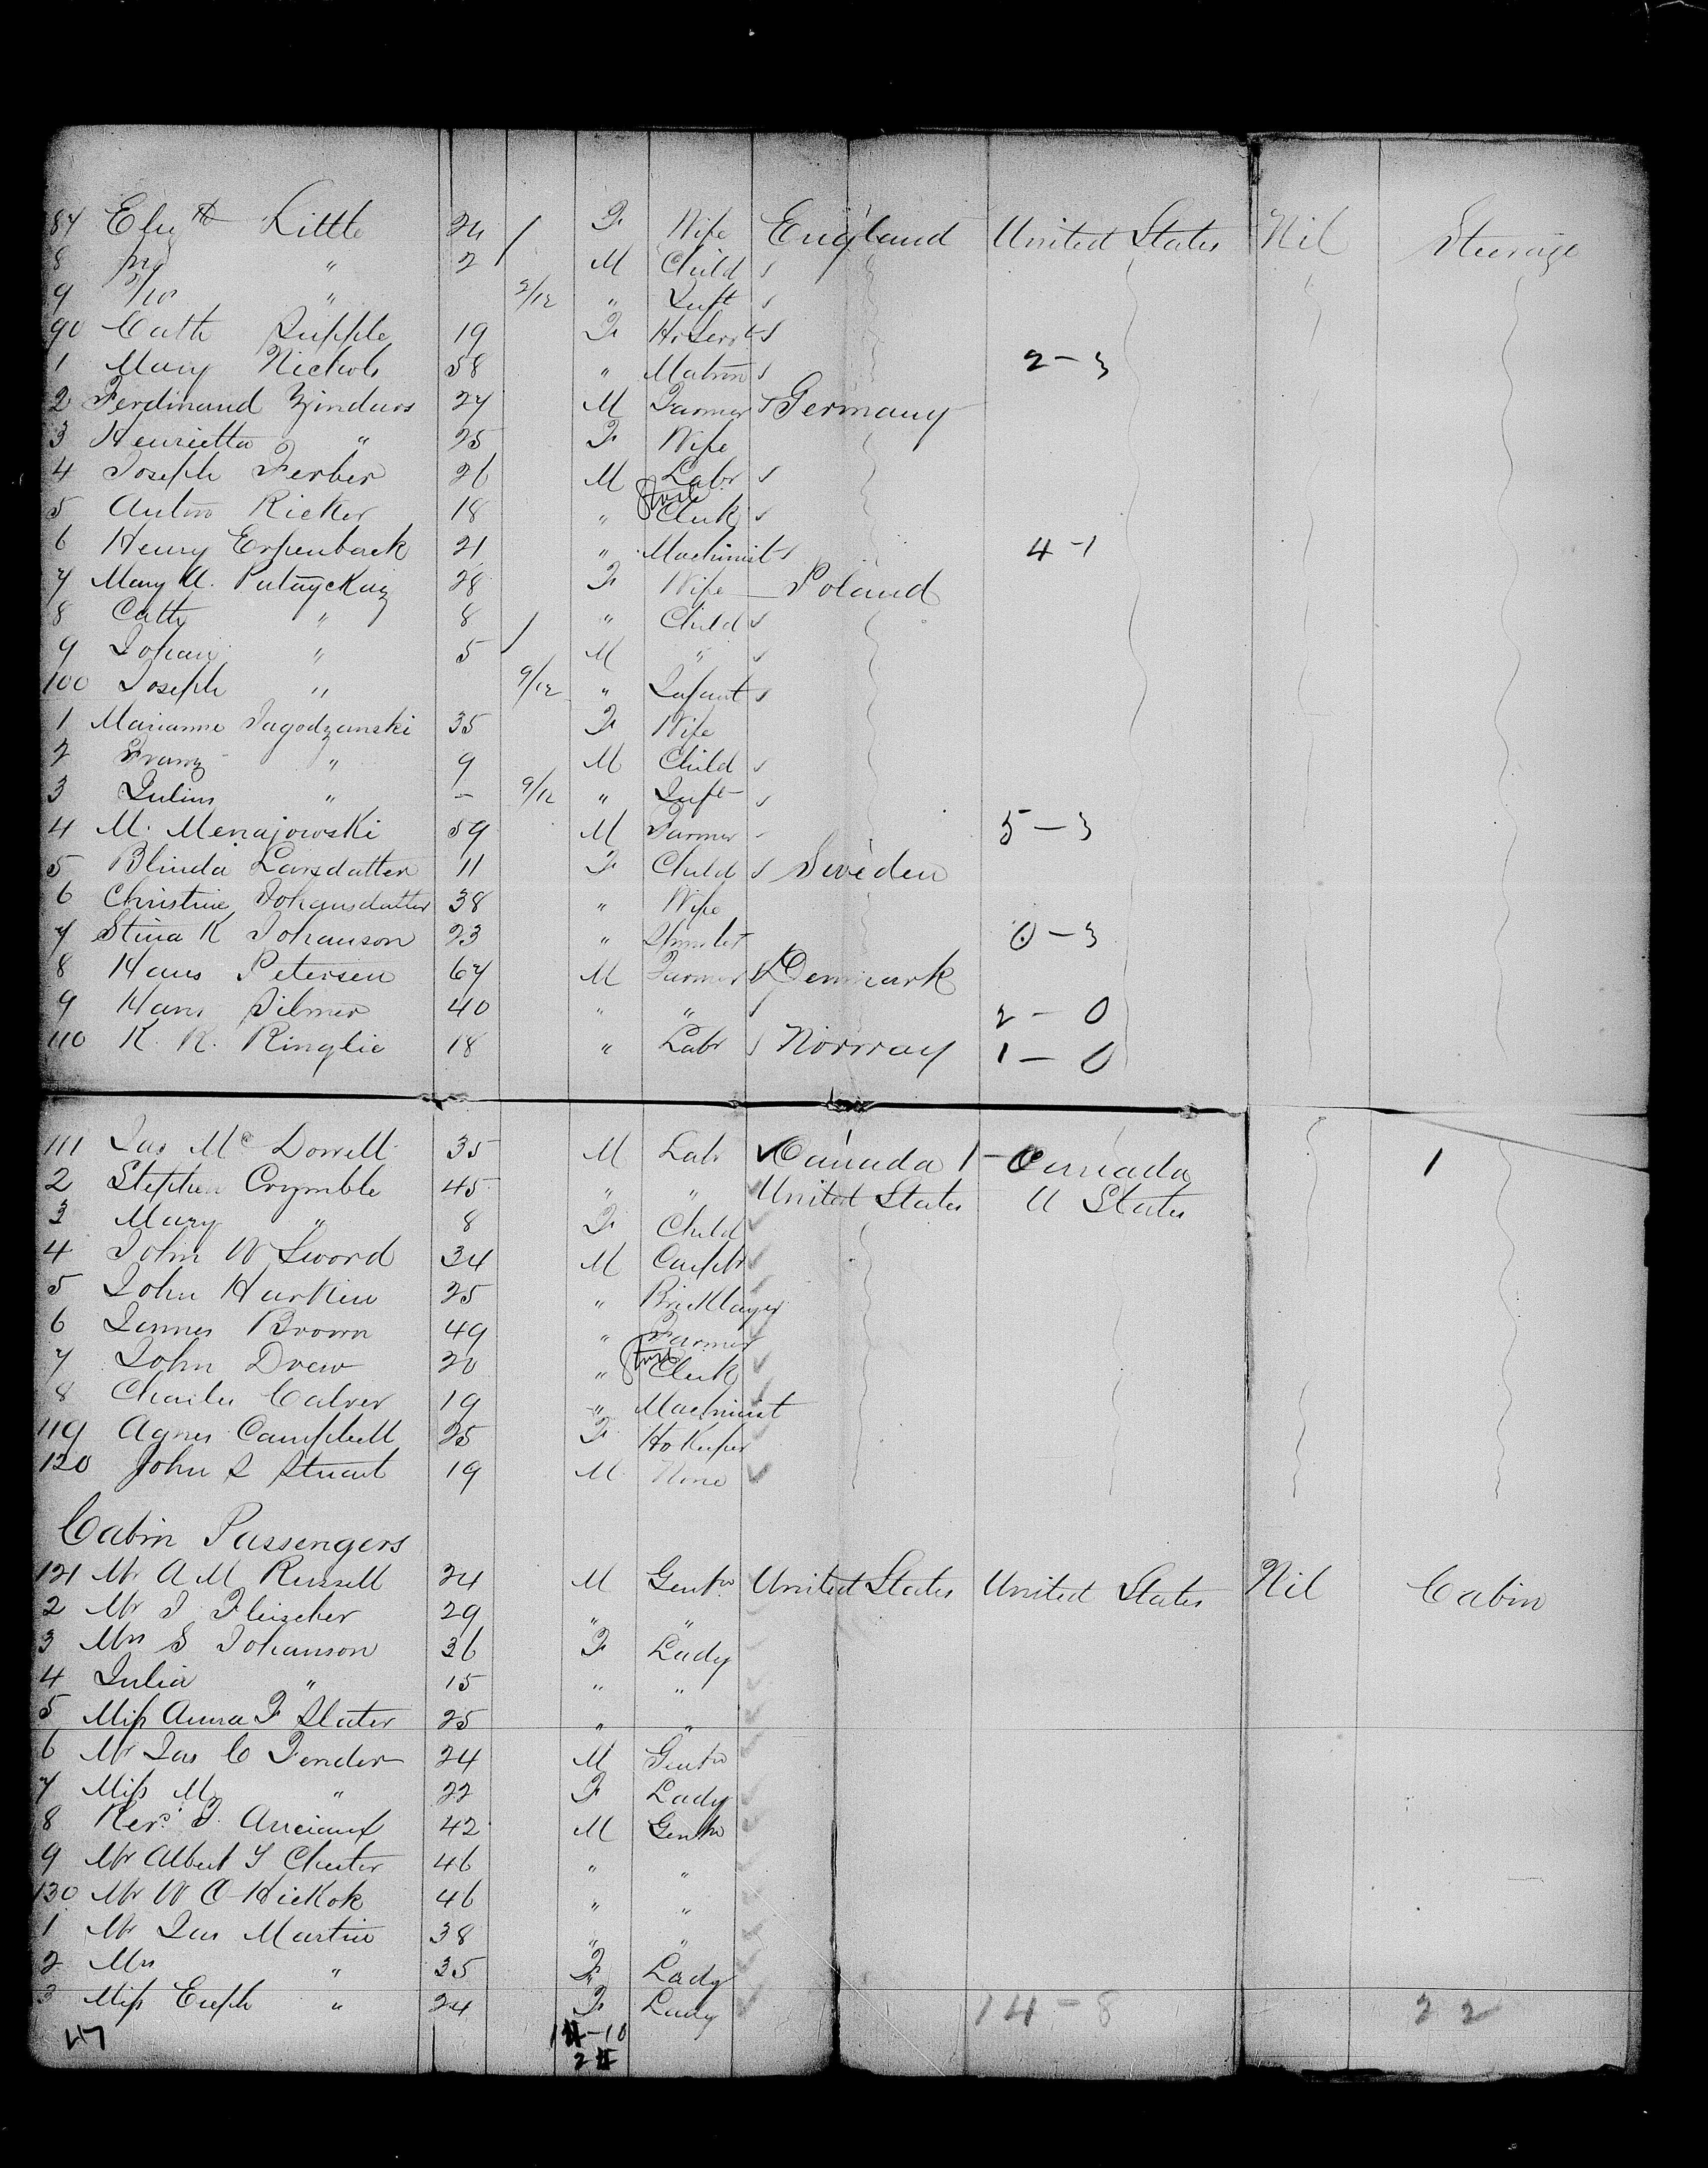 87 Eliz th Little 24 F Wife England United States Nil Steerage
8 " 2 M Child
9 " 2/12 " Inft
90 Cath Supple 19 F Ho Servt
1 Mary Nichols 58 " Matron 2 - 3
2 Ferdinand Zindars 27 M Farmer Germany
3 Henrietta " 25 F Wife
4 Joseph Ferber 26 M Labr
5 Anton Ricker 18 " Store Clerk
6 Henry Erpenback 21 " Machinist 4 - 1
7 Mary A. 28 F Wife Poland
8 Cath " 8 " Child
9 Johan " 5 M "
100 Joseph " 9/12 " Infant
1 Marianne Jagodzanski 35 F Wife
2 Franz " 9 M Child
3 Julius " - 9/12 " Inft
4 M. Menajowski 59 M Farmer 5 - 3
5 Blinda Larsdatter 11 F Child Sweden
6 Christine Johansdatter 38 " Wife
7 Stina K Johanson 23 " Spinster 0 - 3
8 Hans Petersen 67 M Farmer Denmark
9 Hans Silmer 40 " " 2 - 0
110 K. K. Ringlie 18 " Labr Norway 1 - 0
111 Jas Mc Dorrell 35 M Labr Canada 1 - 0 Canada 1
2 Stephen Crymble 45 " " United States U States
3 Mary " 8 F Child
4 John W Sword 34 M Carptr
5 John Harkin 25 " Bricklayer
6 James Brown 49 " Farmer
7 John Drew 20 " Store Clerk
8 Charles Calver 19 " Machinist
119 Agnes Campbell 25 F Ho Keeper
120 John S Stuart 19 M None
Cabin Passengers
121 Mr A M Russell 24 M Gentn United States United States Nil Cabin
2 Mr J Fleischer 29 " "
3 Mrs S Johanson 36 F Lady
4 Julia " 15 " "
5 Miss Anna F Slater 25 " "
6 Mr Jas C Fender 24 M Gentn
7 Miss M " 22 F Lady
8 Revd. J. 42 M Gentn
9 Mr Albert S Chester 46 " "
130 Mr W O Hickok 46 " "
1 Mr Jas Martin 38 " "
2 Mrs " 35 F Lady
3 Miss Euph " 24 F Lady 14 - 8 22
47 14-10
24